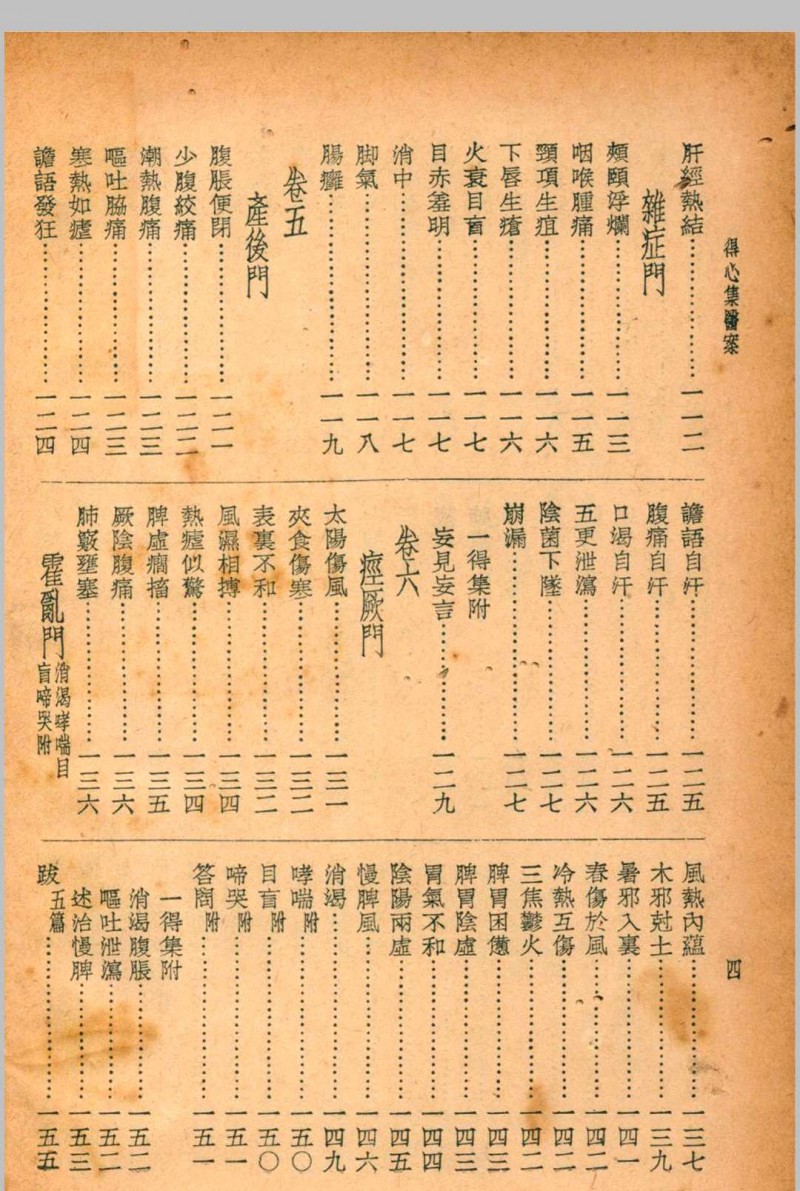 得心集醫案
四
肝經熱結……一一二
雜症門
頰頤浮爛……一一三
咽喉腫痛……一一五
頸項生疽……一一六
下唇生瘡……一一六
火衰目盲……一一七
目赤羞明……一一七
消中……一一七
脚氣……一一八
腸癰……一一九
卷五
產後門
腹脹便閉……一二一
少腹絞痛……一二二
潮熱腹痛……一二三
嘔吐脇痛……一二三
寒熱如瘧……一二四
譫語發狂……一二四
譫語自汗……一二五
腹痛自汗……一二五
口渴自汗……一二六
五更泄瀉……一二六
陰菌下墜……一二七
崩漏……一二七
一得集附
妄見妄言……一二九
卷六
痙厥門
太陽傷風……一三一
夾食傷寒……一三二
表裏不和……一三二
風濕相搏……一三四
熱瘧似驚……一三四
脾虛癇搐……一三五
厥陰腹痛……一三六
肺竅壅塞……一三六
霍亂門 消渴哮喘目盲啼哭附
風熱內蘊……一三七
木邪尅土……一三九
暑邪入裏……一四一
春傷於風……一四二
冷熱互傷……一四二
三焦鬱火……一四二
脾胃困憊……一四三
脾胃陰虛……一四三
胃氣不和……一四四
陰陽兩虛……一四五
慢脾風……一四六
消渴……一四九
哮喘附……一五〇
目盲附……一五〇
啼哭附……一五一
答問附……一五一
一得集附
消渴腹脹……一五二
嘔吐泄瀉……一五二
述治慢脾……一五三
跋五篇……一五五